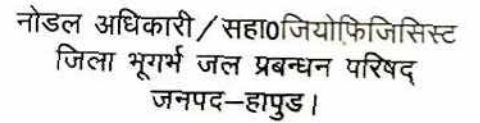 नोडल अधिकारी/सहा0जियोफिजिसिस्ट
जिला भूगर्भ जल प्रबन्धन परिषद्
जनपद–हापुड।